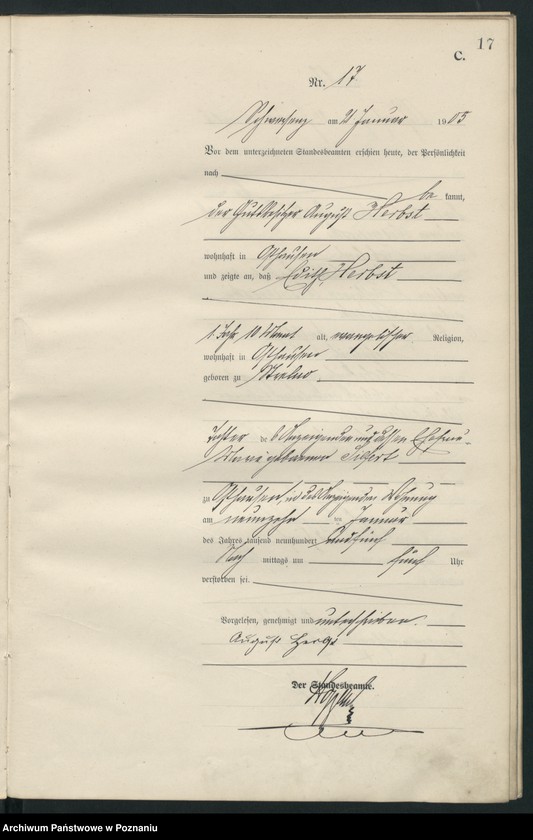 17
C.
Nr. 17
Schwersenz am 21 Januar 1905
Vor dem unterzeichneten Standesbeamten erschien heute, der Persönlichkeit
nach
be kannt,
der Gutsbesitzer August Herbst
wohnhaft in Osthausen
und zeigte an, daß Edith Herbst
1 Jahr 10 Monat alt, evangelischer Religion,
wohnhaft in Osthausen
geboren zu
Tochter des Anzeigenden und dessen Ehefrau
Seifert
zu Osthausen, in des Anzeigenden Wohnung
am neunzehnten Januar
des Jahres tausend neunhundert und fünf
Nach mittags um fünf Uhr
verstorben sei.
Vorgelesen, genehmigt und unterschrieben.
August Herbst
Der Standesbeamte.
Archiwum Państwowe w Poznaniu